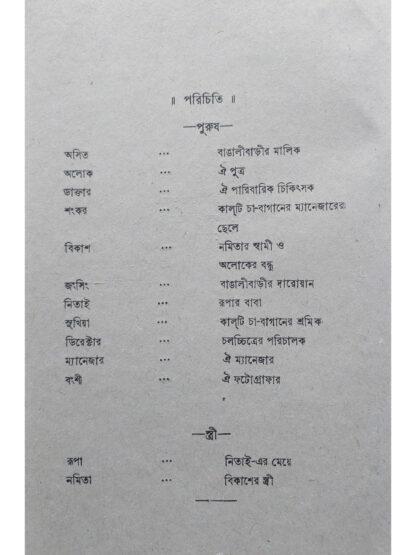 ॥ পরিচিতি ॥
—পুরুষ—
অসিত ... বাঙালীবাড়ীর মালিক
অলোক ... ঐ পুত্র
ডাক্তার ... ঐ পারিবারিক চিকিৎসক
শংকর ... কাল্‌টি চা-বাগানের ম্যানেজারের
ছেলে
বিকাশ ... নমিতার স্বামী ও
অলোকের বন্ধু
জংসিং ... বাঙালীবাড়ীর দারোয়ান
নিতাই ... রূপার বাবা
সুখিয়া ... কাল্‌টি চা-বাগানের শ্রমিক
ডিরেক্টার ... চলচ্চিত্রের পরিচালক
ম্যানেজার ... ঐ ম্যানেজার
বংশী ... ঐ ফটোগ্রাফার
—স্ত্রী—
রূপা ... নিতাই-এর মেয়ে
নমিতা ... বিকাশের স্ত্রী